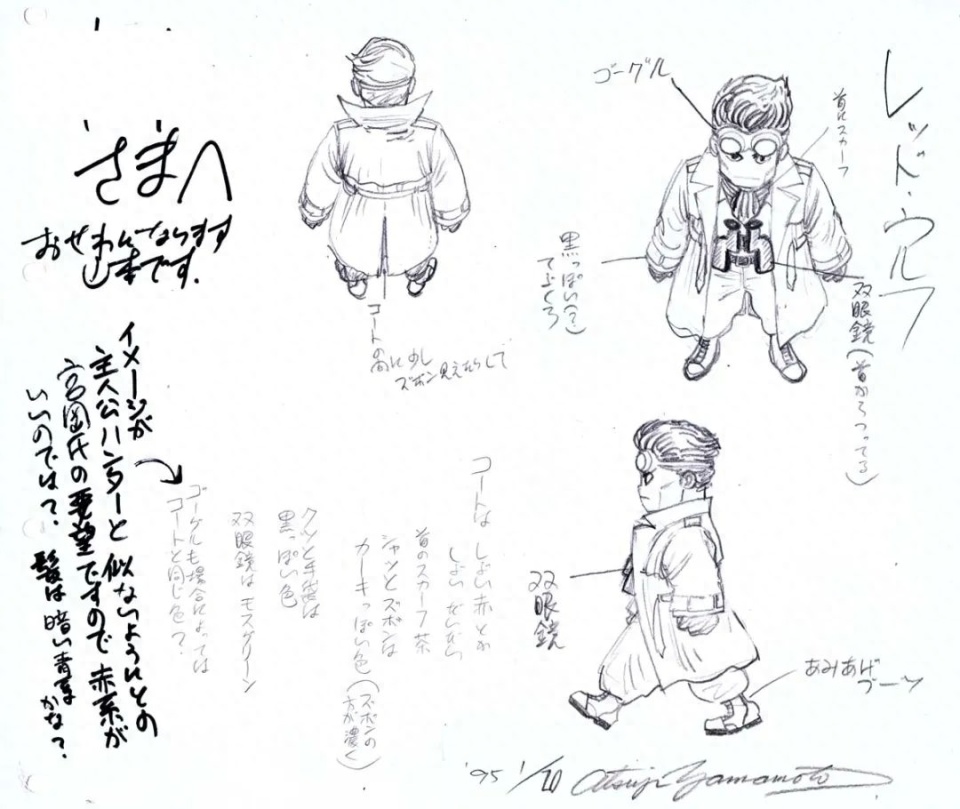 レッド・ウルフ
ゴーグル
首にスカーフ
黒っぽい(?)
てぶくろ
双眼鏡(首からつってる)
コートの
間に少し
ズボン見えたらして
さまへ
おせわになります
山本です.
イメージが
主人公ハンターと似ないようにとの
宮岡氏の要望ですので赤系が
いいのでは? 髪は暗い青系
かな?
コートは しぶい赤とか
しぶい
首のスカーフ茶
シャツとズボンは
カーキっぽい色(ズボンの
方が濃く)
クツと手袋は
黒っぽい色
双眼鏡はモスグリーン
ゴーグルも場合によっては
コートと同じ色?
双眼鏡
あみあげ
ブーツ
'95 1/20 Atsuji Yamamoto